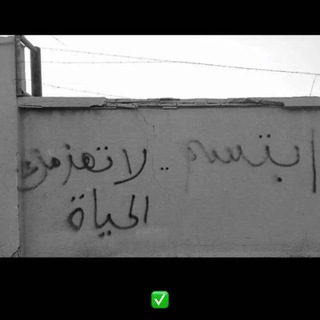 ابتسم .. لا تهزمك
الحياة